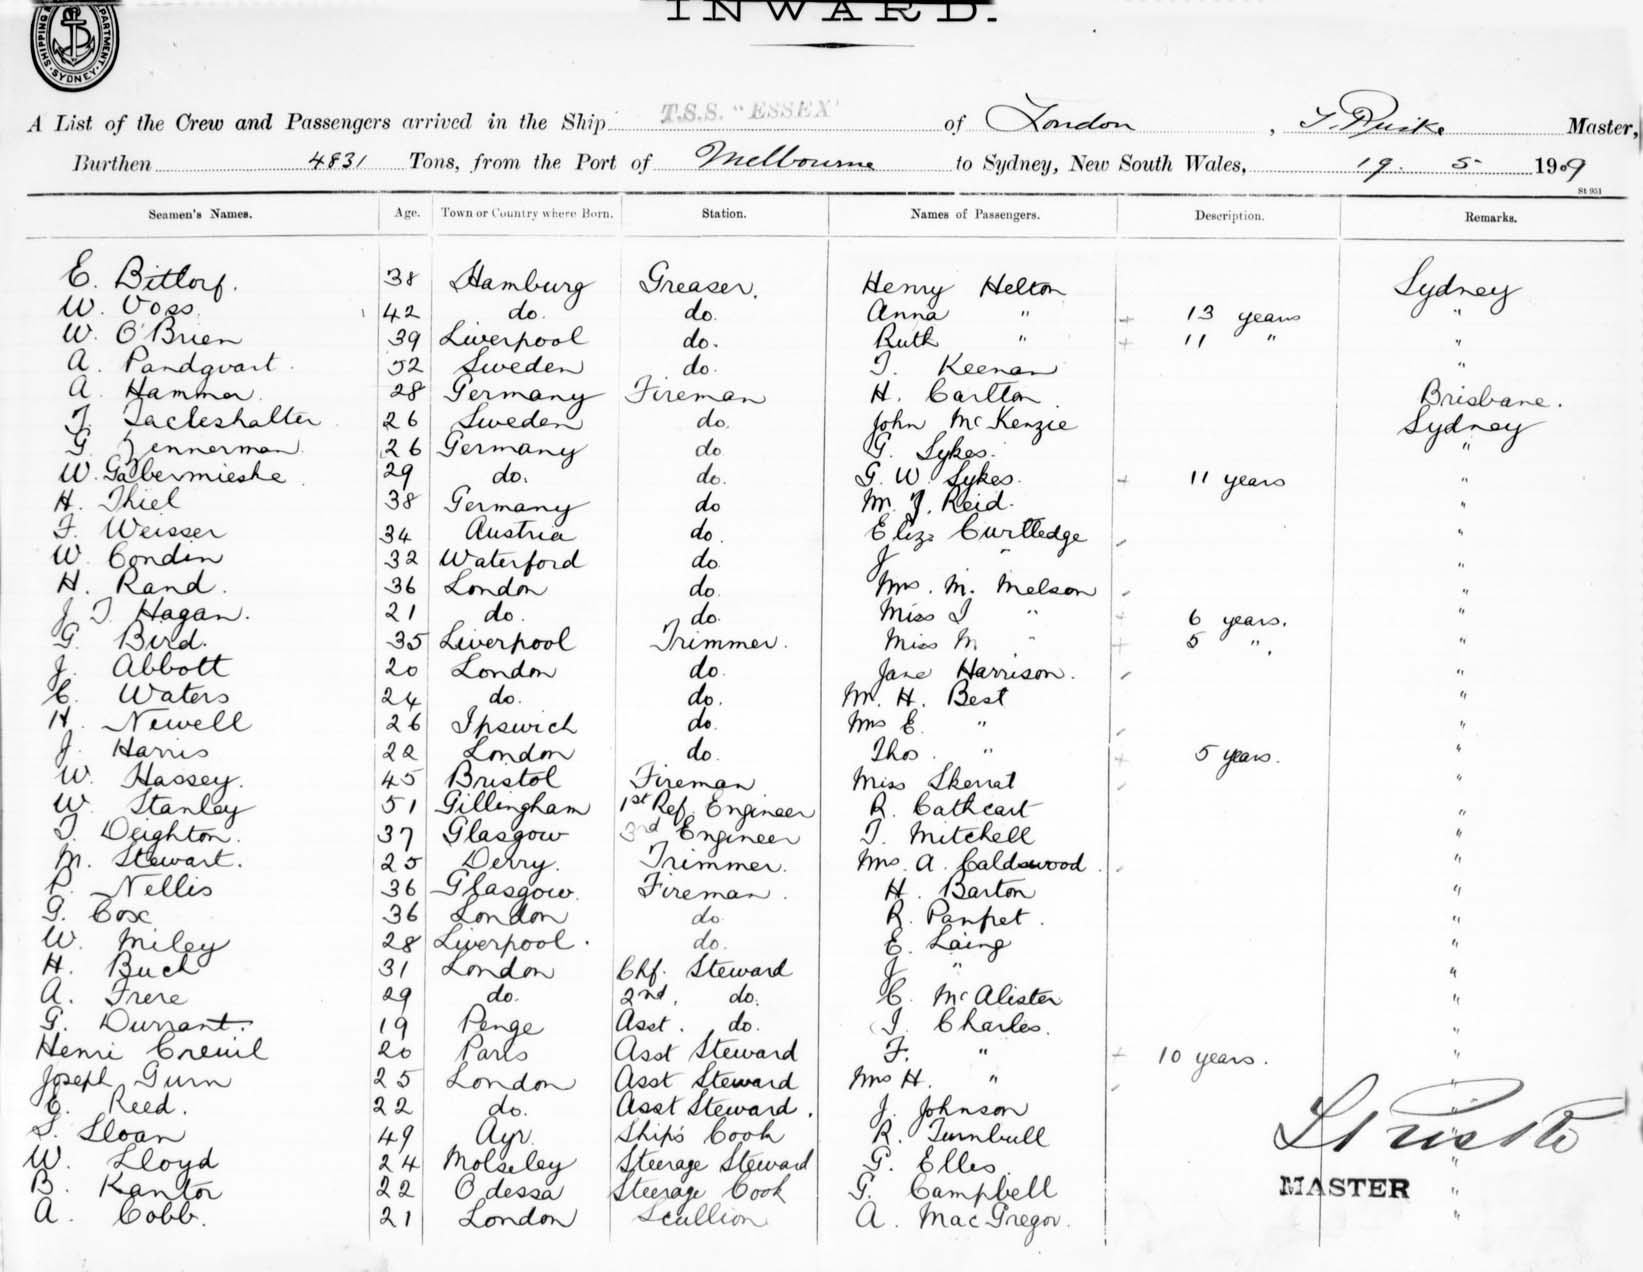 INWARD.
SHIPPING DEPARTMENT. SYDNEY.
A List of the Crew and Passengers arrived in the Ship T.S.S. "ESSEX" of London, Master,
Burthen 4831 Tons, from the Port of Melbourne to Sydney, New South Wales, 19. 5 1909
St 951
Seamen's Names. Age. Town or Country where Born. Station. Names of Passengers. Description. Remarks.
E. Bittorf. 38 Hamburg Greaser. Henry Helton Sydney
W. Voss. 42 do. do. Anna " + 13 years "
W. O'Brien 39 Liverpool do. Ruth " + 11 " "
A. Pandqvart. 52 Sweden do. T. Keenan "
A. Hammer. 28 Germany Fireman H. Carlton. Brisbane.
T. Tacleshalter 26 Sweden do. John McKenzie Sydney
G. Zennerman. 26 Germany do G. Sykes. "
W. Gabermieske. 29 do. do. G. W. Sykes. + 11 years "
H. Thiel 38 Germany do M. J. Reid. "
F. Weisser 34 Austria do. Eliza Curtledge "
W. Condin 32 Waterford do. J " "
H. Rand. 36 London do. Mrs. M. Melson "
J. T. Hagan. 21 do. do. Miss I " + 6 years. "
G. Bird. 35 Liverpool Trimmer. Miss M. " + 5 ". "
J. Abbott 20 London do. Jane Harrison. "
C. Waters 24 do. do. M. H. Best "
H. Newell 26 Ipswich do. Mrs E. " "
J. Harris 22 London do. Thos. " + 5 years. "
W. Hassey. 45 Bristol Fireman Miss Skerrat "
W. Stanley 51 Gillingham 1st Ref. Engineer R. Cathcart "
T. Deighton. 37 Glasgow 3rd Engineer T. Mitchell "
M. Stewart. 25 Derry. Trimmer. Mrs. A. Caldswood. "
P. Nellis 36 Glasgow. Fireman. H. Barton "
G. Cox 36 London do. R. Panfret. "
W. Miley 28 Liverpool. do. E. Laing "
H. Buck 31 London Chf. Steward J " "
A. Frere 29 do. 2nd. do. C. McAlister "
G. Durrant. 19 Penge Asst. do. T. Charles. "
Henri Creuil 20 Paris Asst Steward F. " + 10 years. "
Joseph Gurn 25 London Asst Steward Mrs H. " "
C. Reed. 22 do. Asst Steward. J. Johnson "
S. Sloan 49 Ayr. Ship's Cook R. Turnbull "
W. Lloyd 24 Molseley Steerage Steward G. Elles. "
B. Kantor 22 Odessa Steerage Cook G. Campbell "
A. Cobb. 21 London Scullion A. MacGregor. "
MASTER